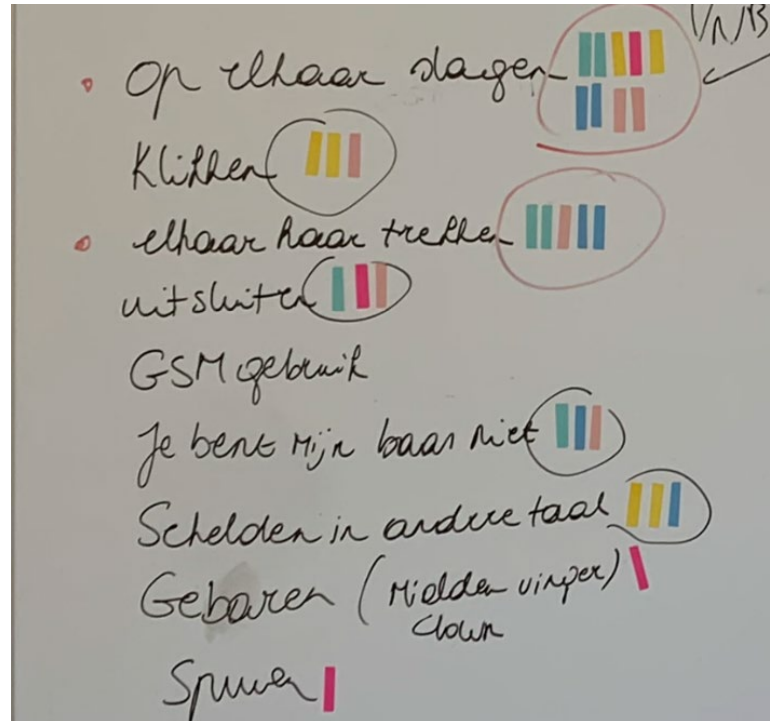 op elkaar slagen
Klikken
elkaar haar trekken
uitsluiten
GSM gebruik
Je bent Mijn baas niet
Schelden in andere taal
Gebaren (Midden vinger)
clown
Spuwen